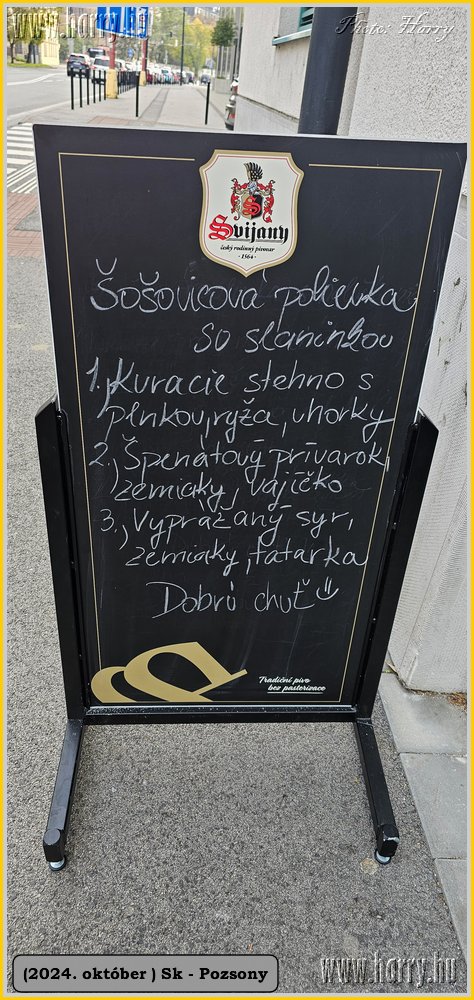 www.harry.hu
Photo: Harry
Svijany
český rodinný pivovar
· 1564 ·
Šošovicová polievka
so slaninkou
1., Kuracie stehno s
plnkou, ryža, uhorky
2., Špenátový prívarok,
zemiaky, vajíčko
3., Vyprážaný syr,
zemiaky, tatarka
Dobrú chuť
Tradiční pivo
bez pasterizace
(2024. október ) Sk - Pozsony
www.harry.hu